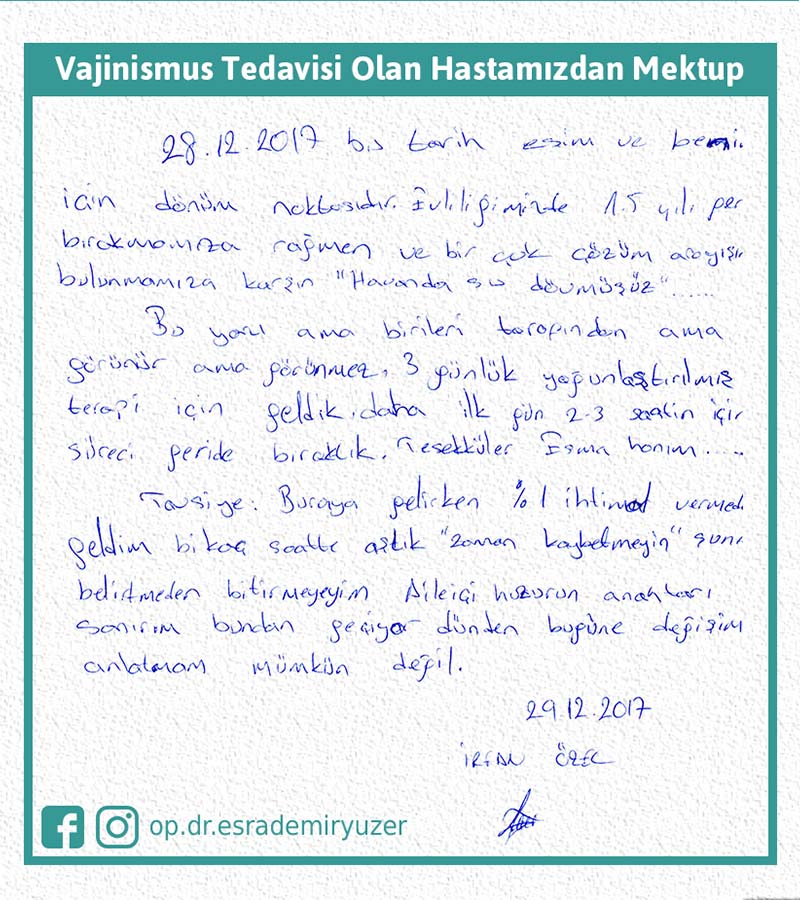 Vajinismus Tedavisi Olan Hastamızdan Mektup
28.12.2017 bu tarih eşim ve benim
için dönüm noktasıdır. Evliliğimizde 1.5 yılı ger
bırakmamıza rağmen ve bir çok çözüm arayışı
bulunmamıza karşın "Havanda su dövmüşüz"......
Bu yazı ama birileri tarafından ama
görünür ama görünmez, 3 günlük yoğunlaştırılmış
terapi için geldik, daha ilk gün 2-3 saatin için
süreci geride bıraktık. Teşekküler Esma hanım....
Tavsiye: Buraya gelirken %1 ihtimal vermed
geldim bikaç saatte aştık "zaman kaybetmeyin" şunu
belirtmeden bitirmeyeyim Aileiçi huzurun anahtarı
sanırım bundan geçiyor dünden bugüne değişim
anlatmam mümkün değil.
29.12.2017
İRFAN ÖZEL
op.dr.esrademiryuzer